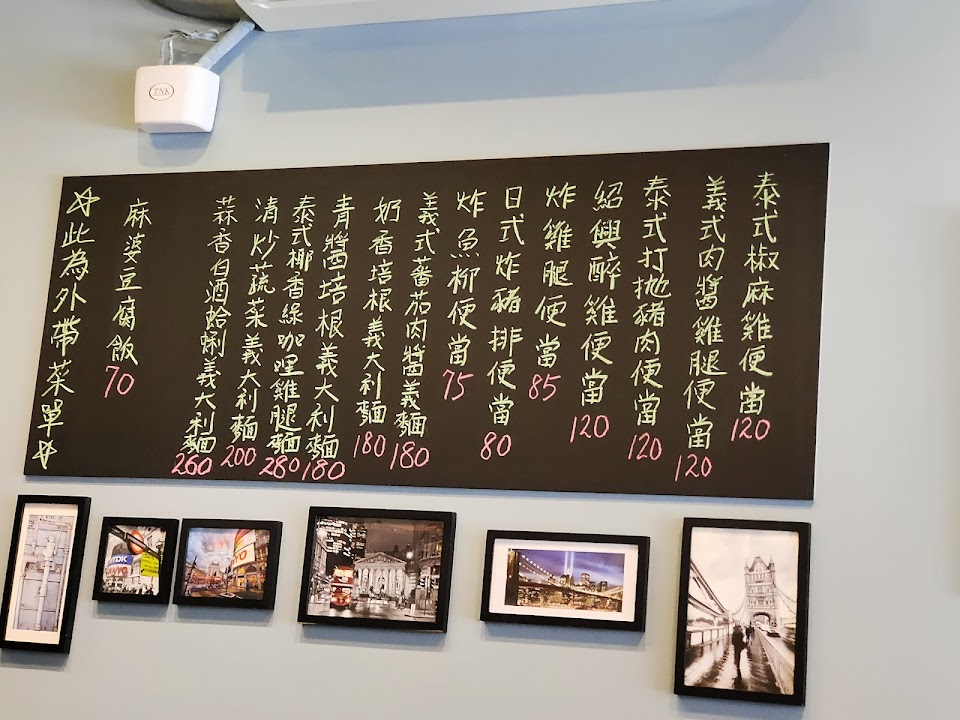 TNK
泰式椒麻雞便當
120
義式肉醬雞腿便當
120
泰式打拋豬肉便當
120
紹興醉雞便當
120
炸雞腿便當
85
日式炸豬排便當
80
炸魚柳便當
75
義式蕃茄肉醬義麵
180
奶香培根義大利麵
180
青醬培根義大利麵
180
泰式椰香綠咖哩雞腿麵
280
清炒蔬菜義大利麵
200
蒜香白酒蛤蜊義大利麵
260
麻婆豆腐飯
70
☆此為外帶菜單☆
TDK